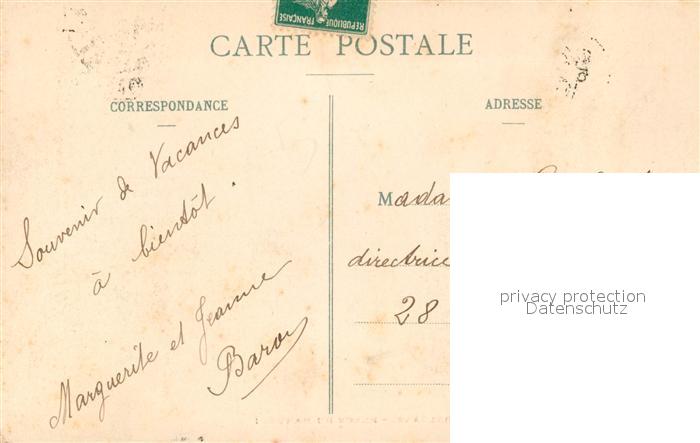 RÉPUBLIQUE FRANÇAISE
CARTE POSTALE
CORRESPONDANCE
ADRESSE
Souvenir de Vacances
à bientôt.
Marguerite et Jeanne
Baron
Mada
directrice
28
privacy protection
Datenschutz